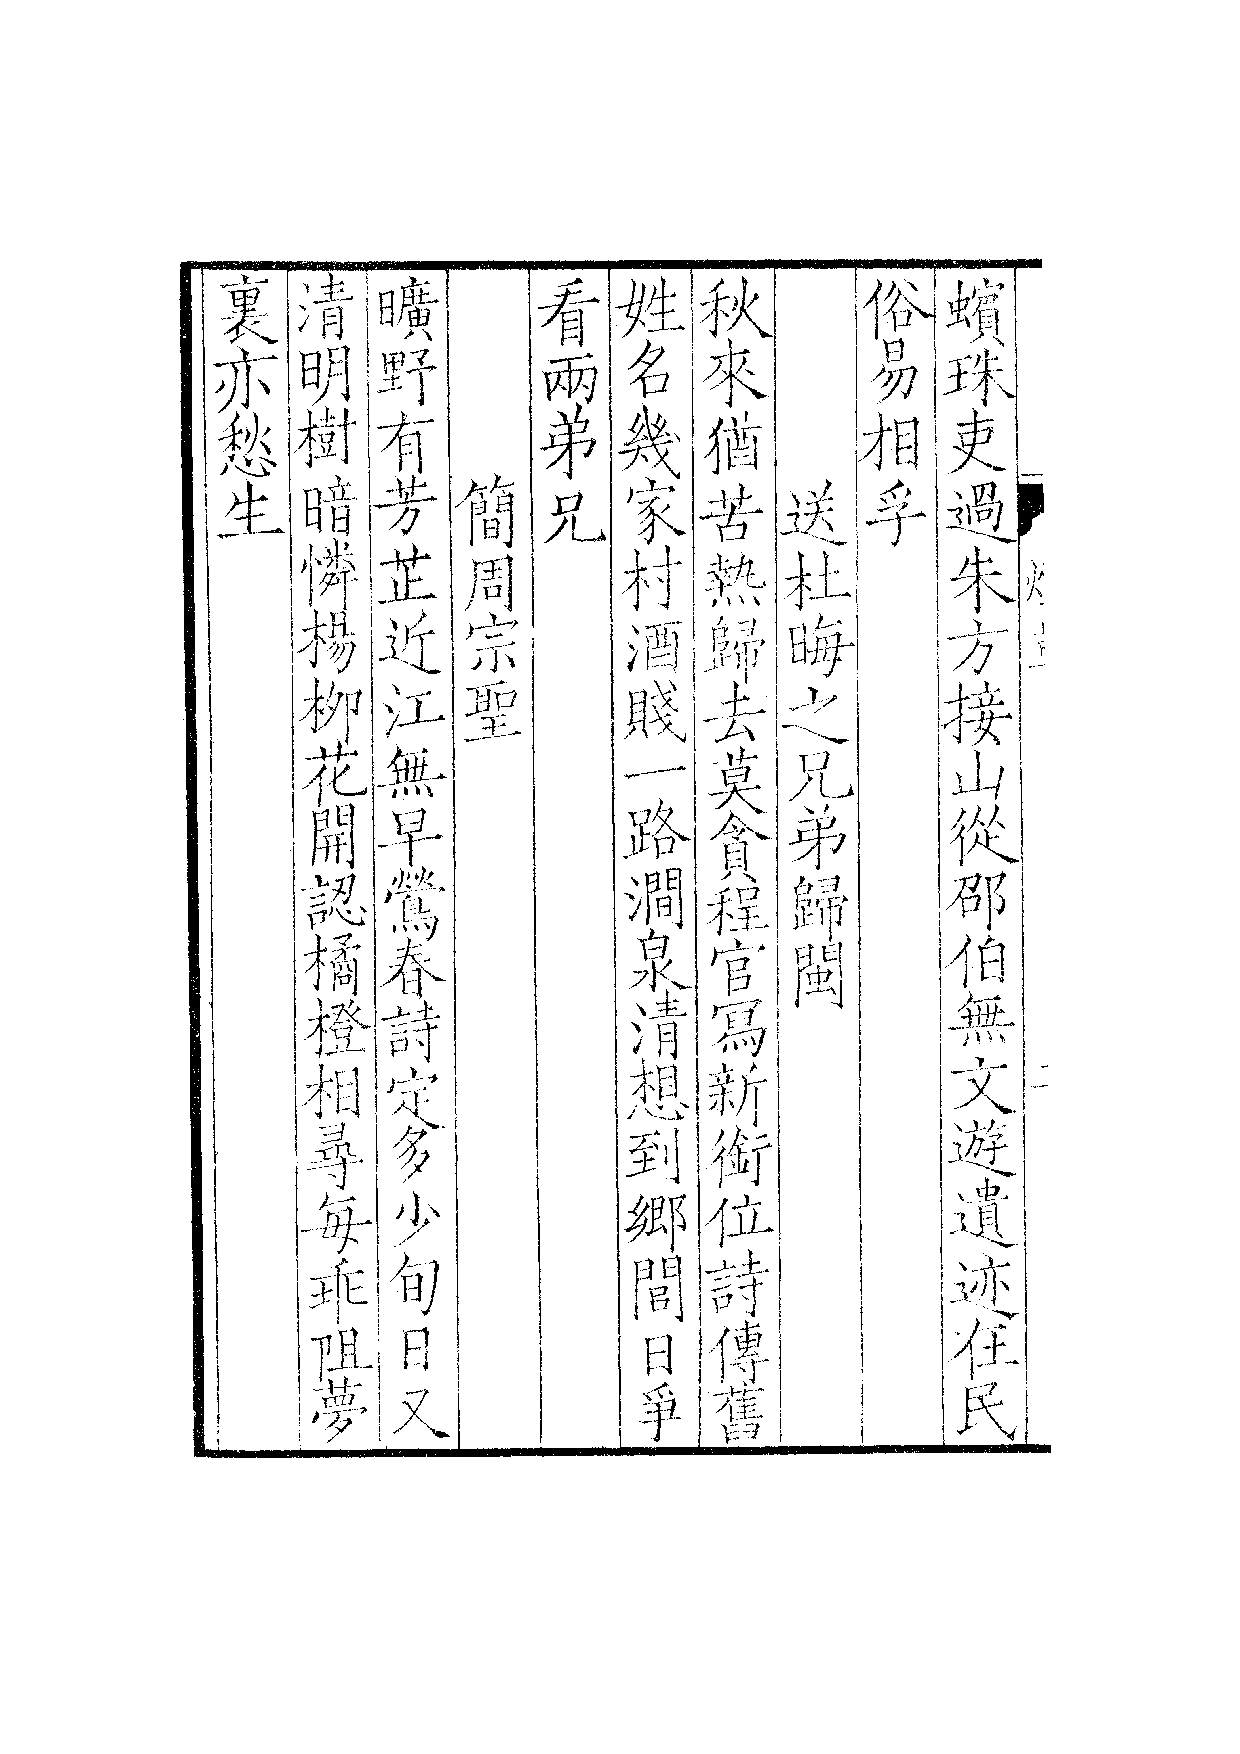 蠙珠吏過朱方接山從邵伯無文遊遺迹在民
俗易相孚
送杜晦之兄弟歸閩
秋來猶苦熱歸去莫貪程官寫新銜位詩傳舊
姓名幾家村酒賤一路澗泉清想到鄉閭日爭
看兩弟兄
簡周宗聖
曠野有芳芷近江無早鶯春詩定多少旬日又
清明樹暗憐楊柳花開認橘橙相尋每乖阻夢
裏亦愁生